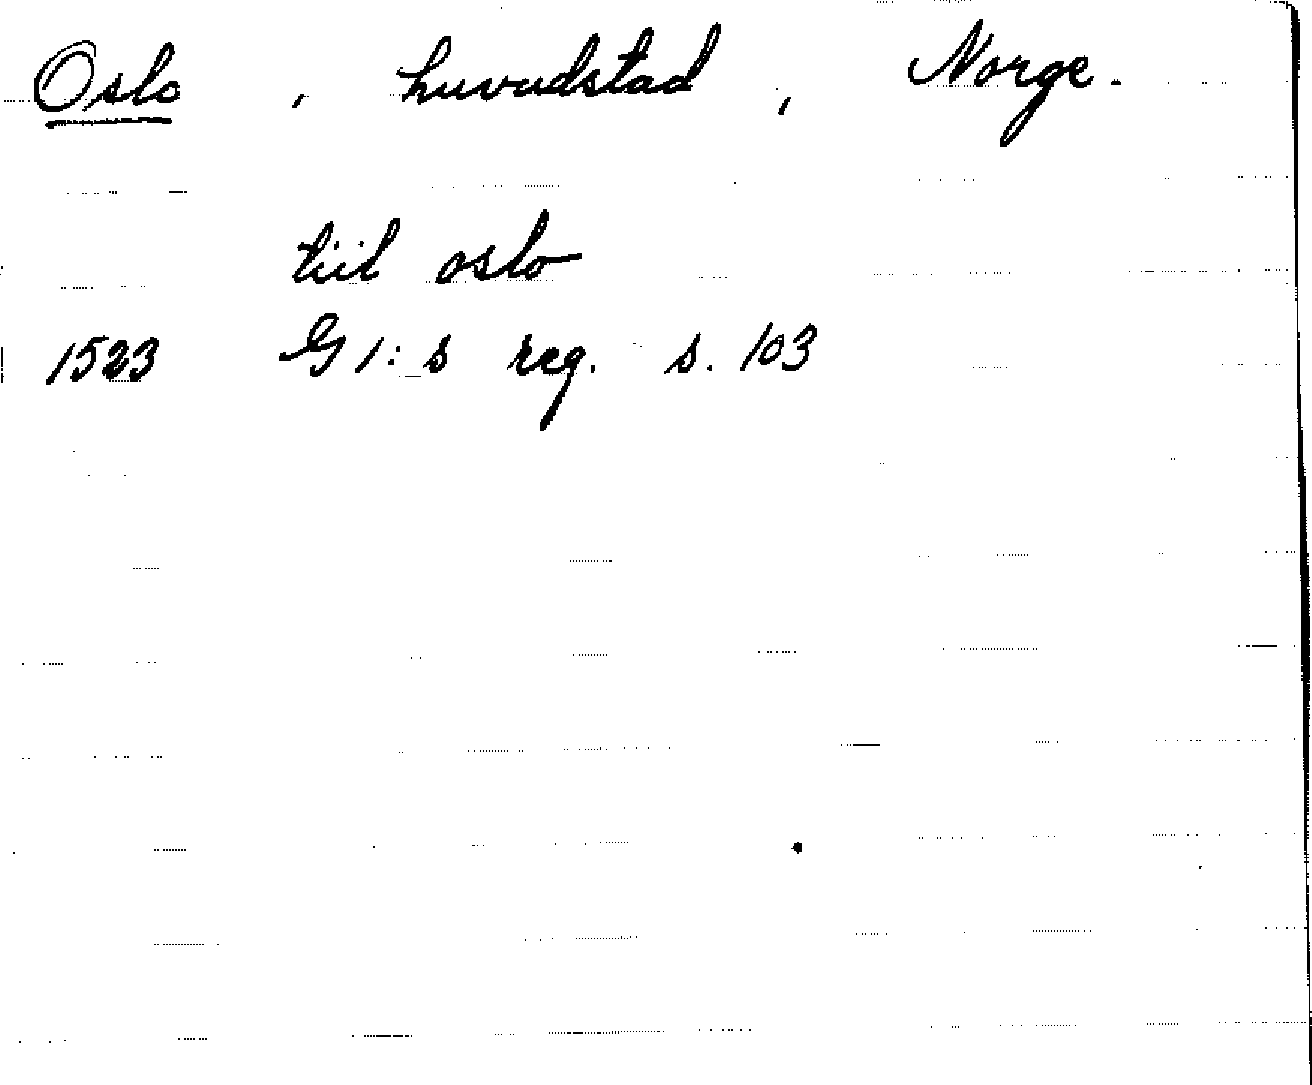 Oslo , huvudstad , Norge.
tiil oslo
1523 G1:s reg. s. 103